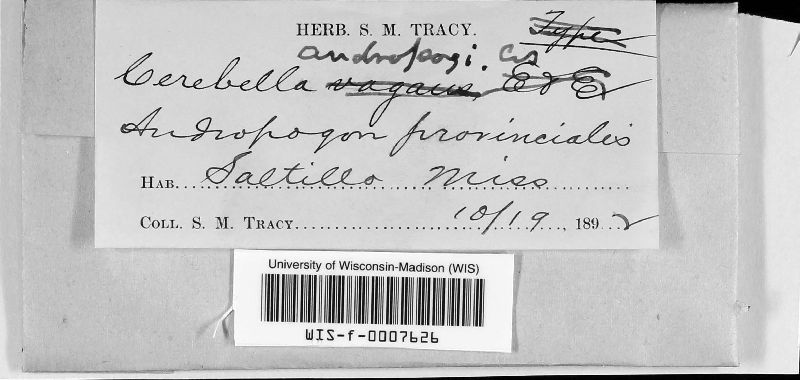 HERB. S. M. TRACY. Type
andropogi. Ces
Cerebella vagans, E & E
Andropogon provincialis
HAB. Saltillo Miss
COLL. S. M. TRACY. 10/19, 1892
University of Wisconsin-Madison (WIS)
WIS-f-0007626